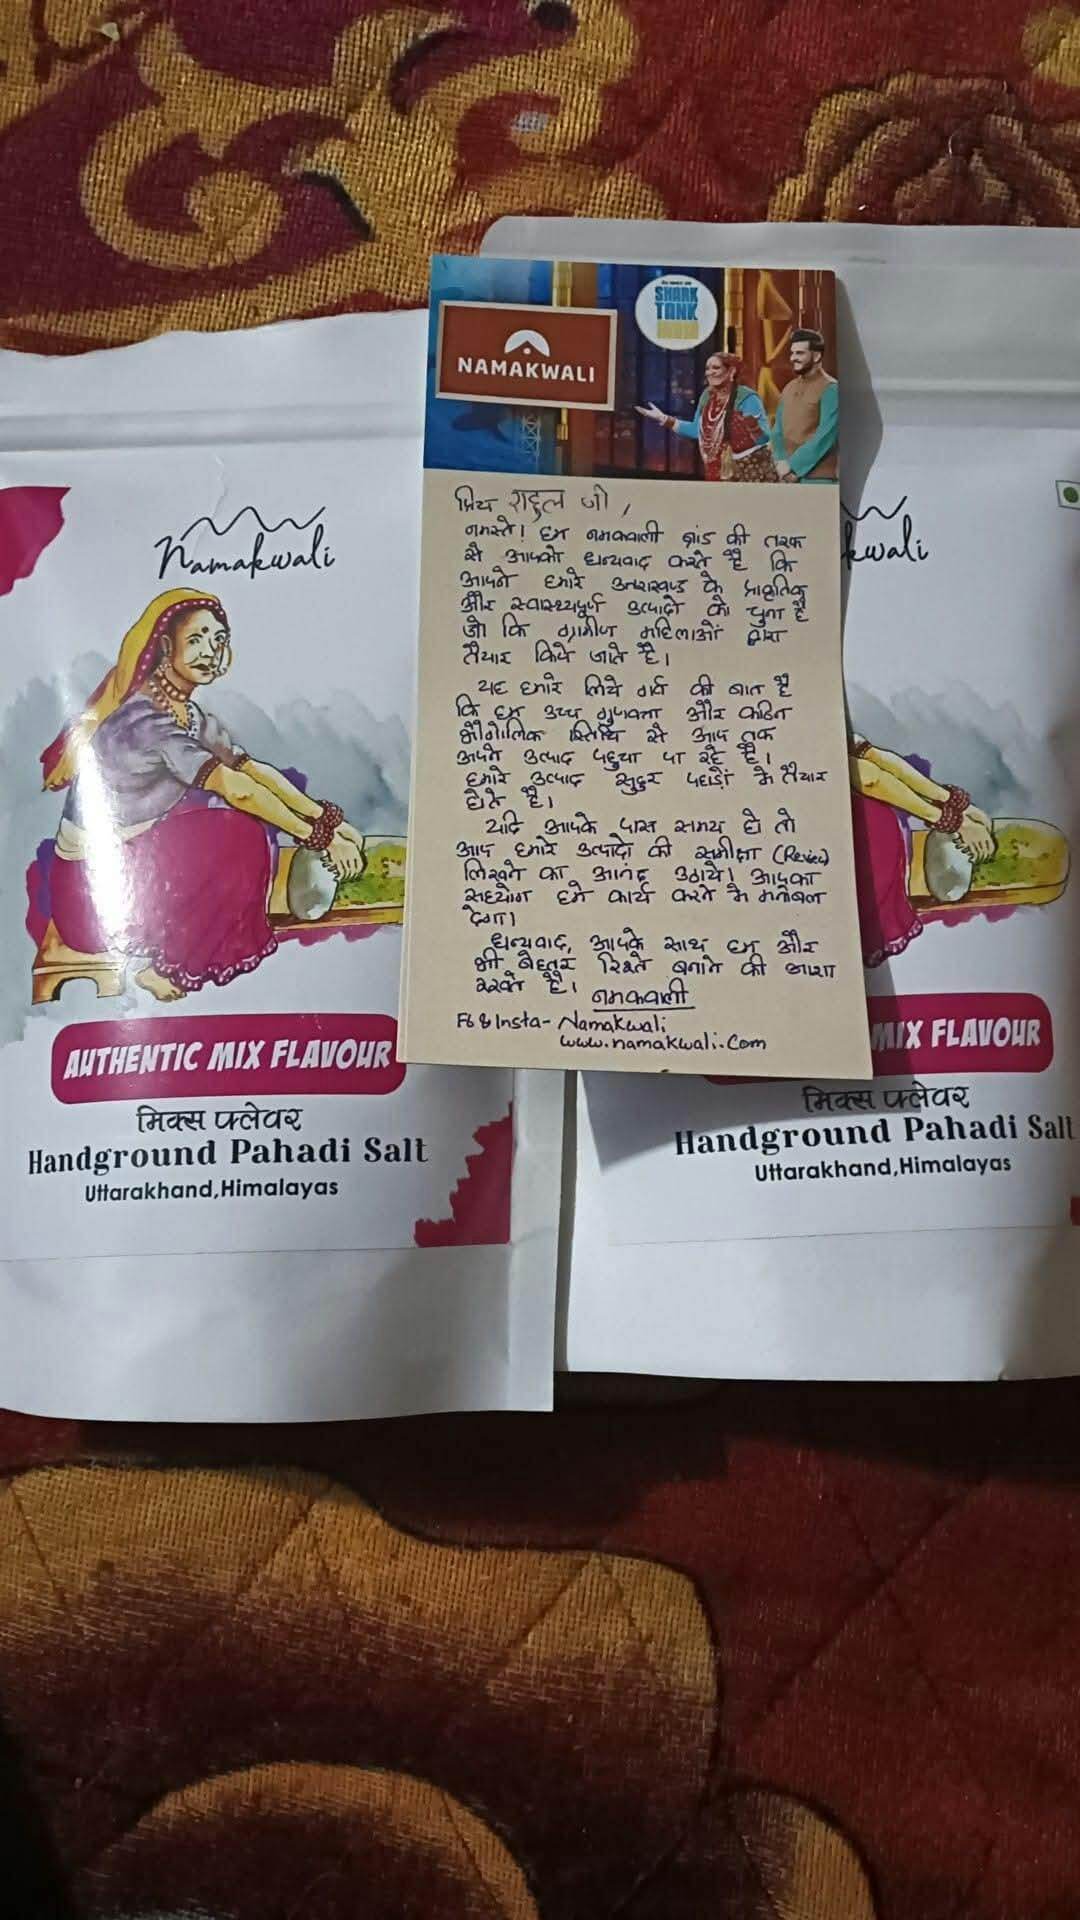 SHARK
TANK
INDIA
NAMAKWALI
प्रिय राहुल जी,
नमस्ते! हम नमकवाली ब्रांड की तरफ
से आपको धन्यवाद करते है कि
आपने हमारे उत्तराखण्ड के प्राकृतिक
और स्वास्थ्यपूर्ण उत्पादो को चुना है
जो कि ग्रामीण महिलाओं द्वारा
तैयार किये जाते है।
यह हमारे लिये गर्व की बात है
कि हम उच्च गुणवत्ता और कठिन
भौगोलिक स्तिथि से आप तक
अपने उत्पाद पहुचा पा रहे है।
हमारे उत्पाद सुदुर पहाड़ों मे तैयार
होते है।
यदि आपके पास समय हो तो
आप हमारे उत्पादो की समीक्षा (Review)
लिखने का आनंद उठाये। आपका
सहयोग हमे कार्य करने मे मनोबल
देगा।
धन्यवाद, आपके साथ हम और
भी बेहतर रिश्ते बनाने की आशा
रखते है।
नमकवाली
Fb & Insta- Namakwali
www.namakwali.com
Namakwali
AUTHENTIC MIX FLAVOUR
मिक्स फ्लेवर
Handground Pahadi Salt
Uttarakhand,Himalayas
kwali
MIX FLAVOUR
मिक्स फ्लेवर
Handground Pahadi Salt
Uttarakhand,Himalayas